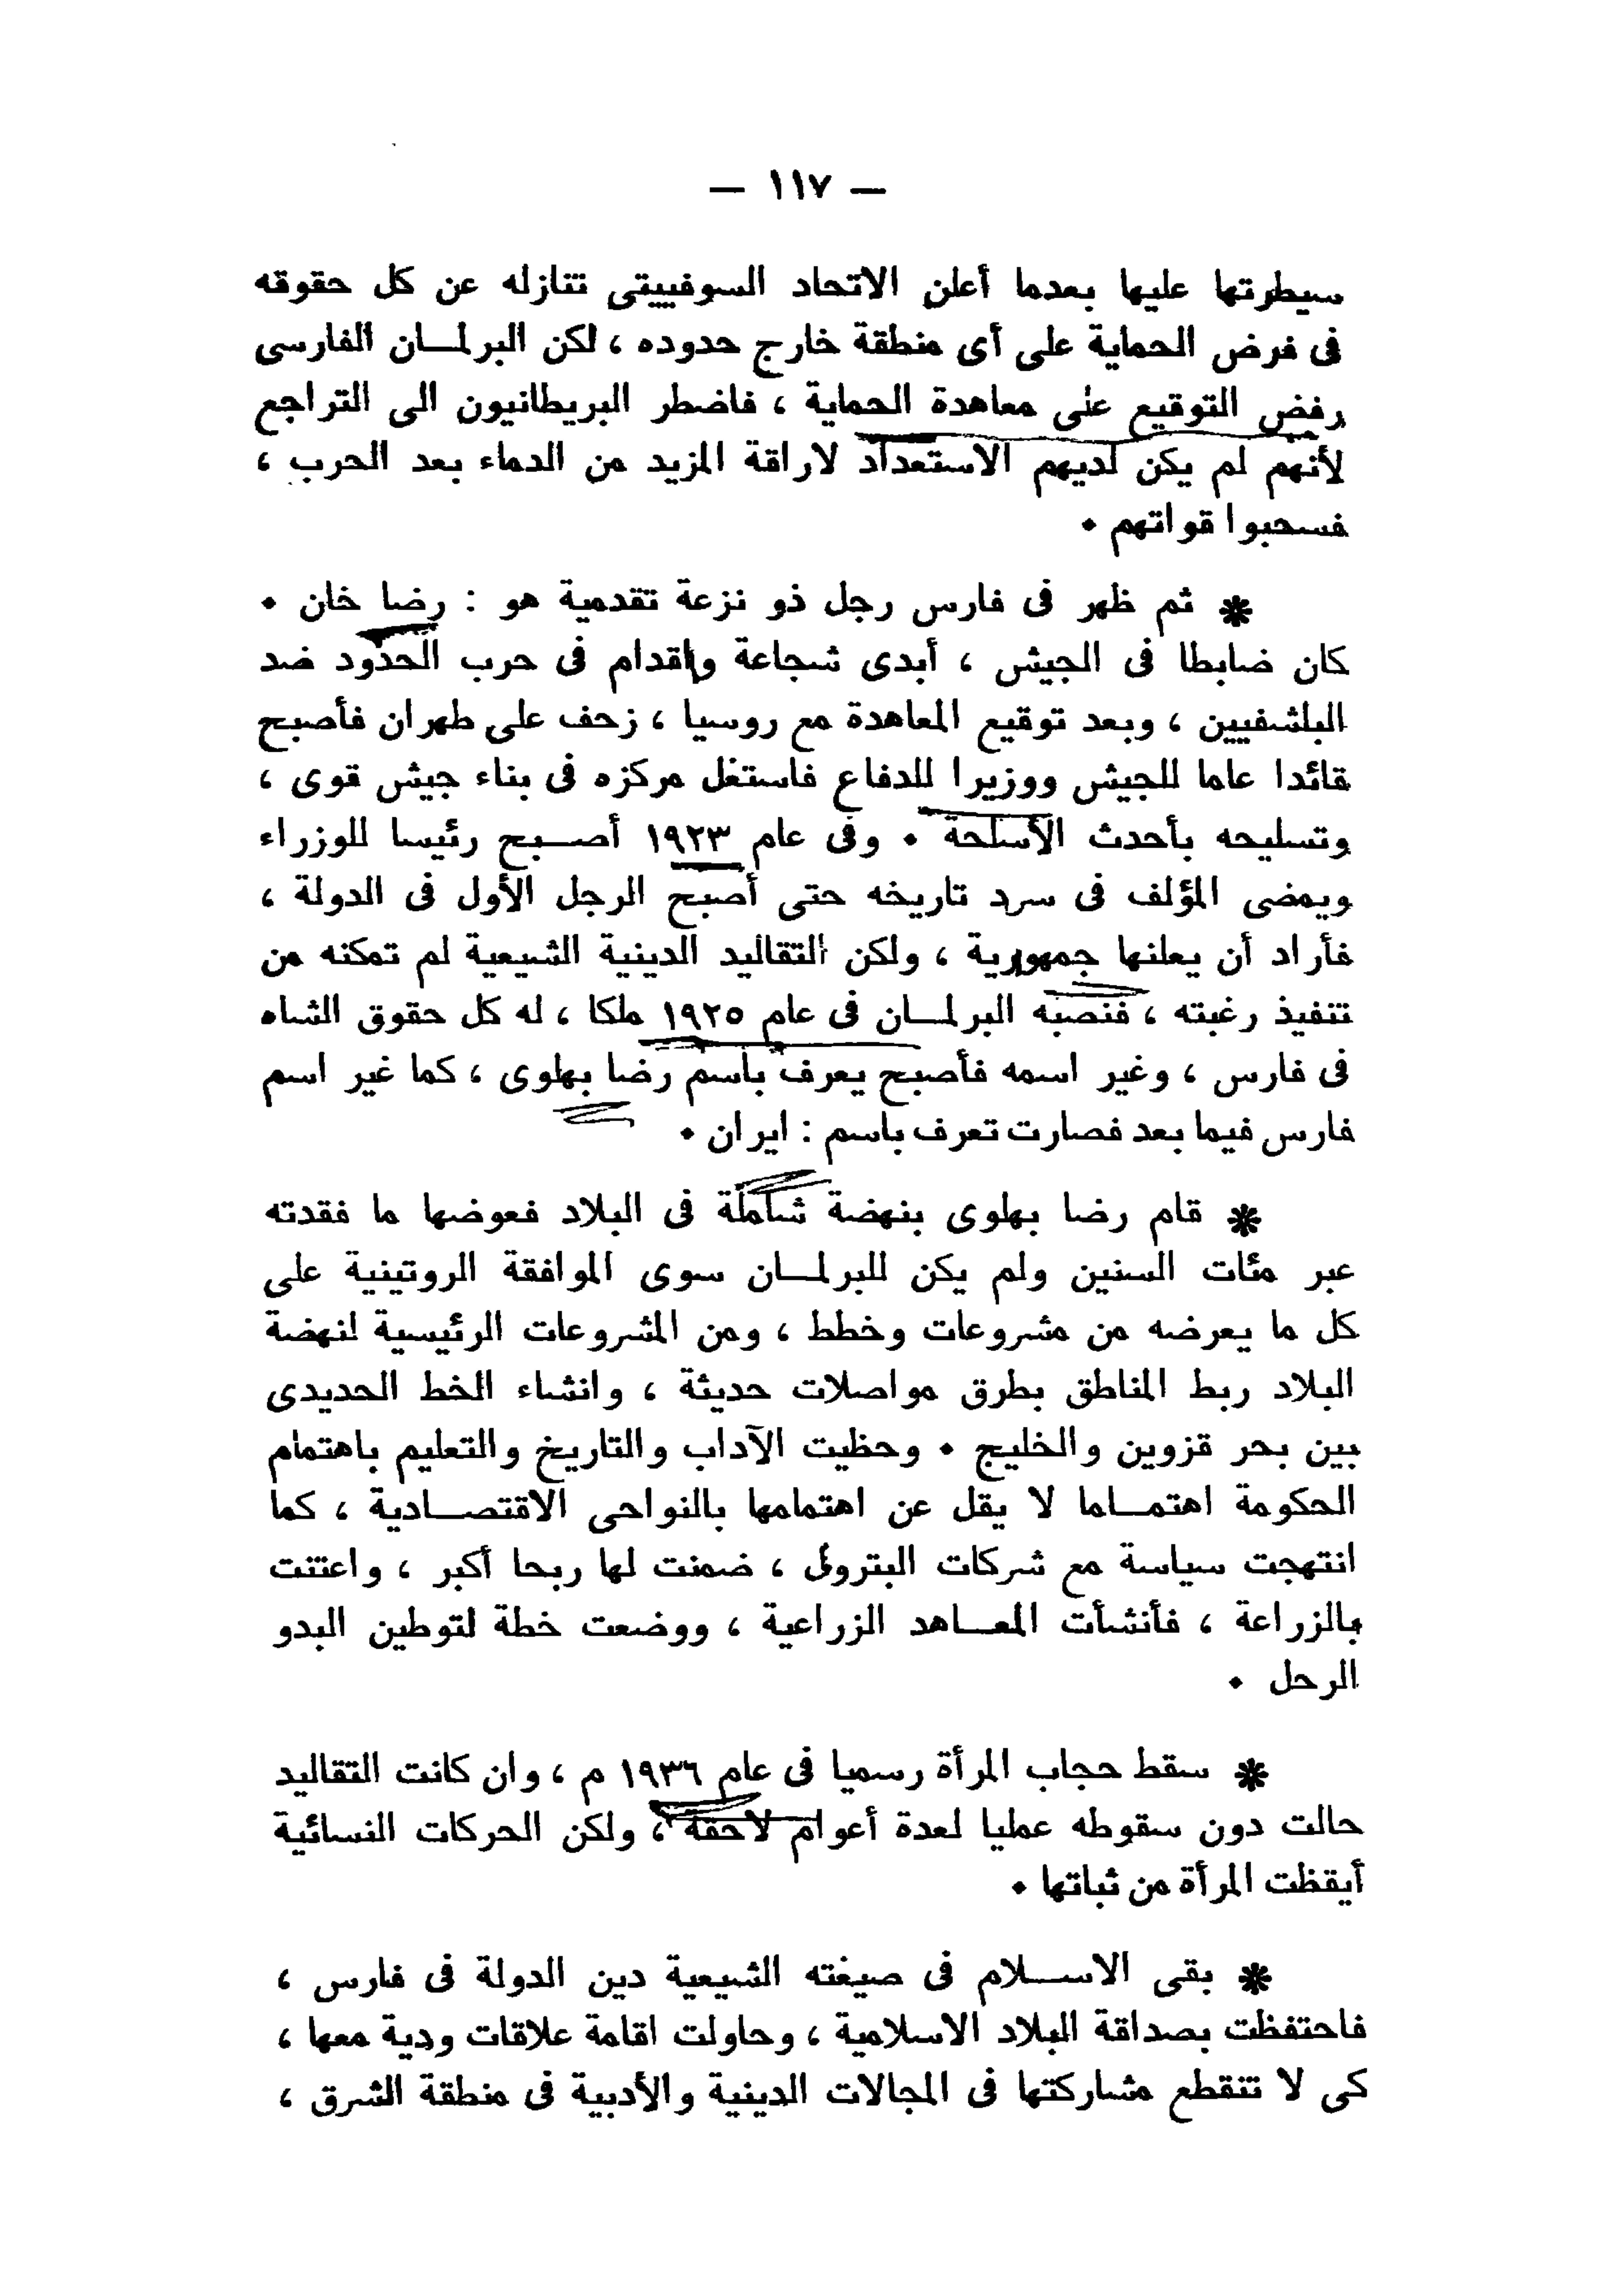 — ١١٧ —
سيطرتها عليها بعدما أعلن الاتحاد السوفييتى تنازله عن كل حقوقه
فى فرض الحماية على أى منطقة خارج حدوده ، لكن البرلمــان الفارسى
رفض التوقيع على معاهدة الحماية ، فاضطر البريطانيون الى التراجع
لأنهم لم يكن لديهم الاستعداد لاراقة المزيد من الدماء بعد الحرب ،
فسحبوا قواتهم ٠
✻ ثم ظهر فى فارس رجل ذو نزعة تقدمية هو : رضا خان ٠
كان ضابطا فى الجيش ، أبدى شجاعة واقدام فى حرب الحدود ضد
البلشفيين ، وبعد توقيع المعاهدة مع روسيا ، زحف على طهران فأصبح
قائدا عاما للجيش ووزيرا للدفاع فاستغل مركزه فى بناء جيش قوى ،
وتسليحه بأحدث الأسلحة ٠ وفى عام ١٩٢٣ أصــبح رئيسا للوزراء
ويمضى المؤلف فى سرد تاريخه حتى أصبح الرجل الأول فى الدولة ،
فأراد أن يعلنها جمهورية ، ولكن التقاليد الدينية الشيعية لم تمكنه من
تنفيذ رغبته ، فنصبه البرلمــان فى عام ١٩٢٥ ملكا ، له كل حقوق الشاه
فى فارس ، وغير اسمه فأصبح يعرف باسم رضا بهلوى ، كما غير اسم
فارس فيما بعد فصارت تعرف باسم : ايران ٠
✻ قام رضا بهلوى بنهضة شاملة فى البلاد فعوضها ما فقدته
عبر مئات السنين ولم يكن للبرلمــان سوى الموافقة الروتينية على
كل ما يعرضه من مشروعات وخطط ، ومن المشروعات الرئيسية لنهضة
البلاد ربط المناطق بطرق مواصلات حديثة ، وانشاء الخط الحديدى
بين بحر قزوين والخليج ٠ وحظيت الآداب والتاريخ والتعليم باهتمام
الحكومة اهتمــاما لا يقل عن اهتمامها بالنواحى الاقتصــادية ، كما
انتهجت سياسة مع شركات البترول ، ضمنت لها ربحا أكبر ، واعتنت
بالزراعة ، فأنشأت المعــاهد الزراعية ، ووضعت خطة لتوطين البدو
الرحل ٠
✻ سقط حجاب المرأة رسميا فى عام ١٩٣٦ م ، وان كانت التقاليد
حالت دون سقوطه عمليا لعدة أعوام لاحقة ، ولكن الحركات النسائية
أيقظت المرأة من ثباتها ٠
✻ بقى الاســلام فى صيغته الشيعية دين الدولة فى فارس ،
فاحتفظت بصداقة البلاد الاسلامية ، وحاولت اقامة علاقات ودية معها ،
كى لا تنقطع مشاركتها فى المجالات الدينية والأدبية فى منطقة الشرق ،